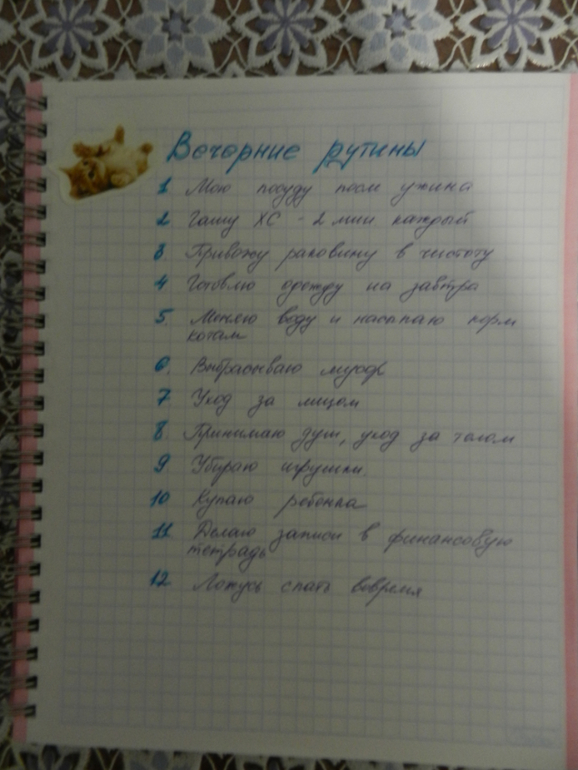 Вечерние рутины
1 Мою посуду после ужина
2 Гашу ХС - 2 мин каждый
3 Привожу раковину в чистоту
4 Готовлю одежду на завтра
5 Меняю воду и насыпаю корм
котам
6. Выбрасываю мусор
7 Уход за лицом
8. Принимаю душ, уход за телом
9 Убираю игрушки
10 Купаю ребенка
11 Делаю записи в финансовую
тетрадь
12 Ложусь спать вовремя